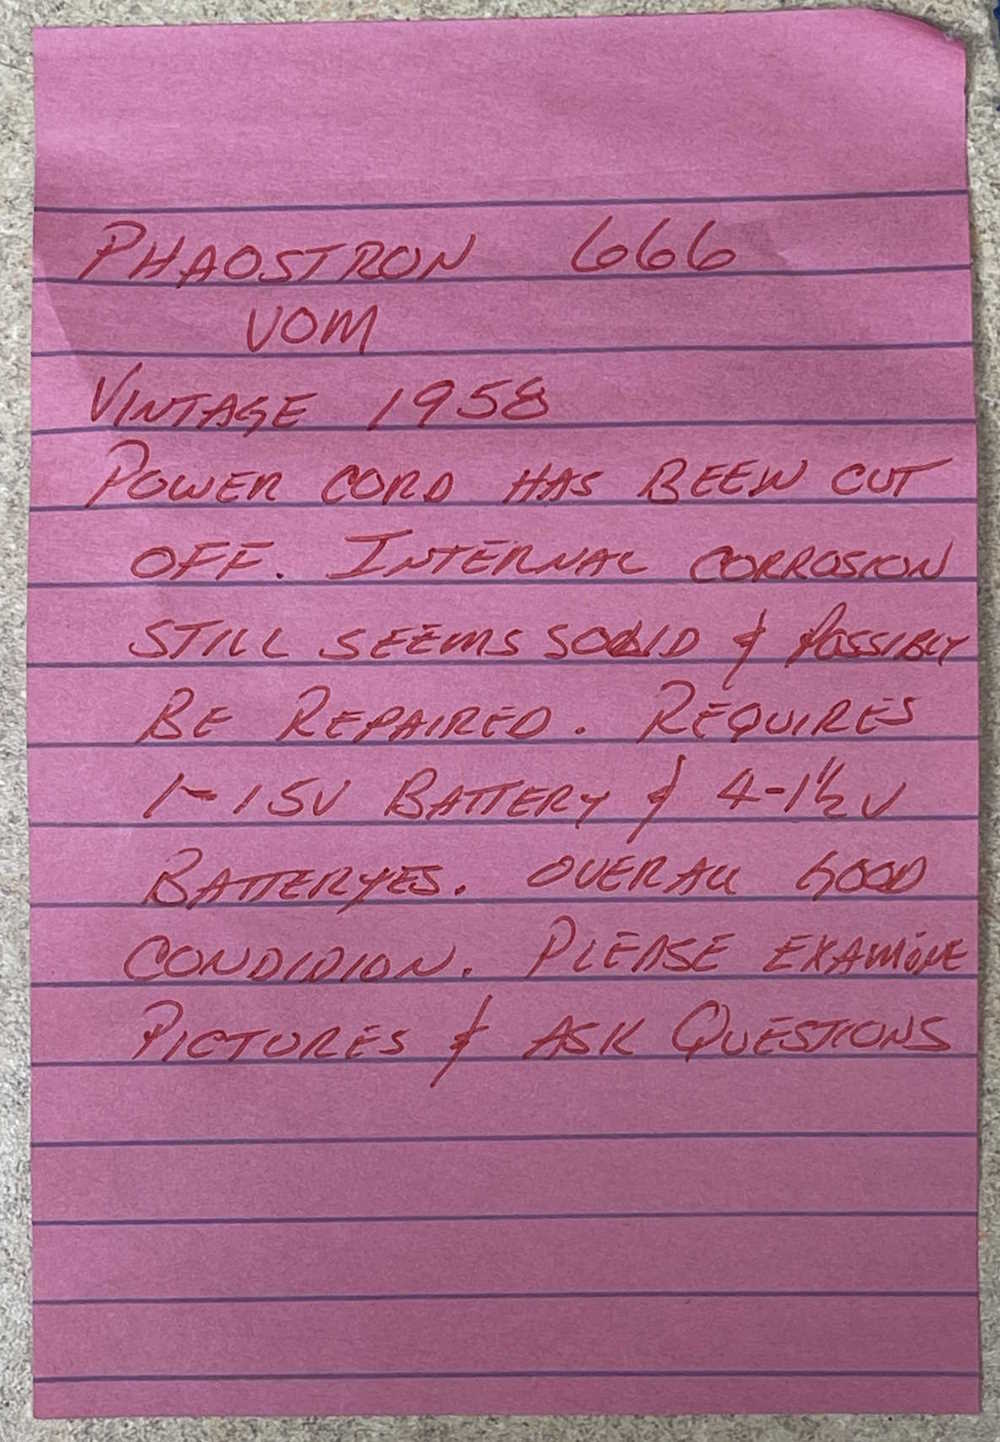 PHAOSTRON 666
VOM
VINTAGE 1958
POWER CORD HAS BEEN CUT
OFF. INTERNAL CORROSION
STILL SEEMS SOLID & POSSIBLY
BE REPAIRED. REQUIRES
1-15V BATTERY & 4-1½V
BATTERYES. OVERALL GOOD
CONDIDION. PLEASE EXAMINE
PICTURES & ASK QUESTIONS